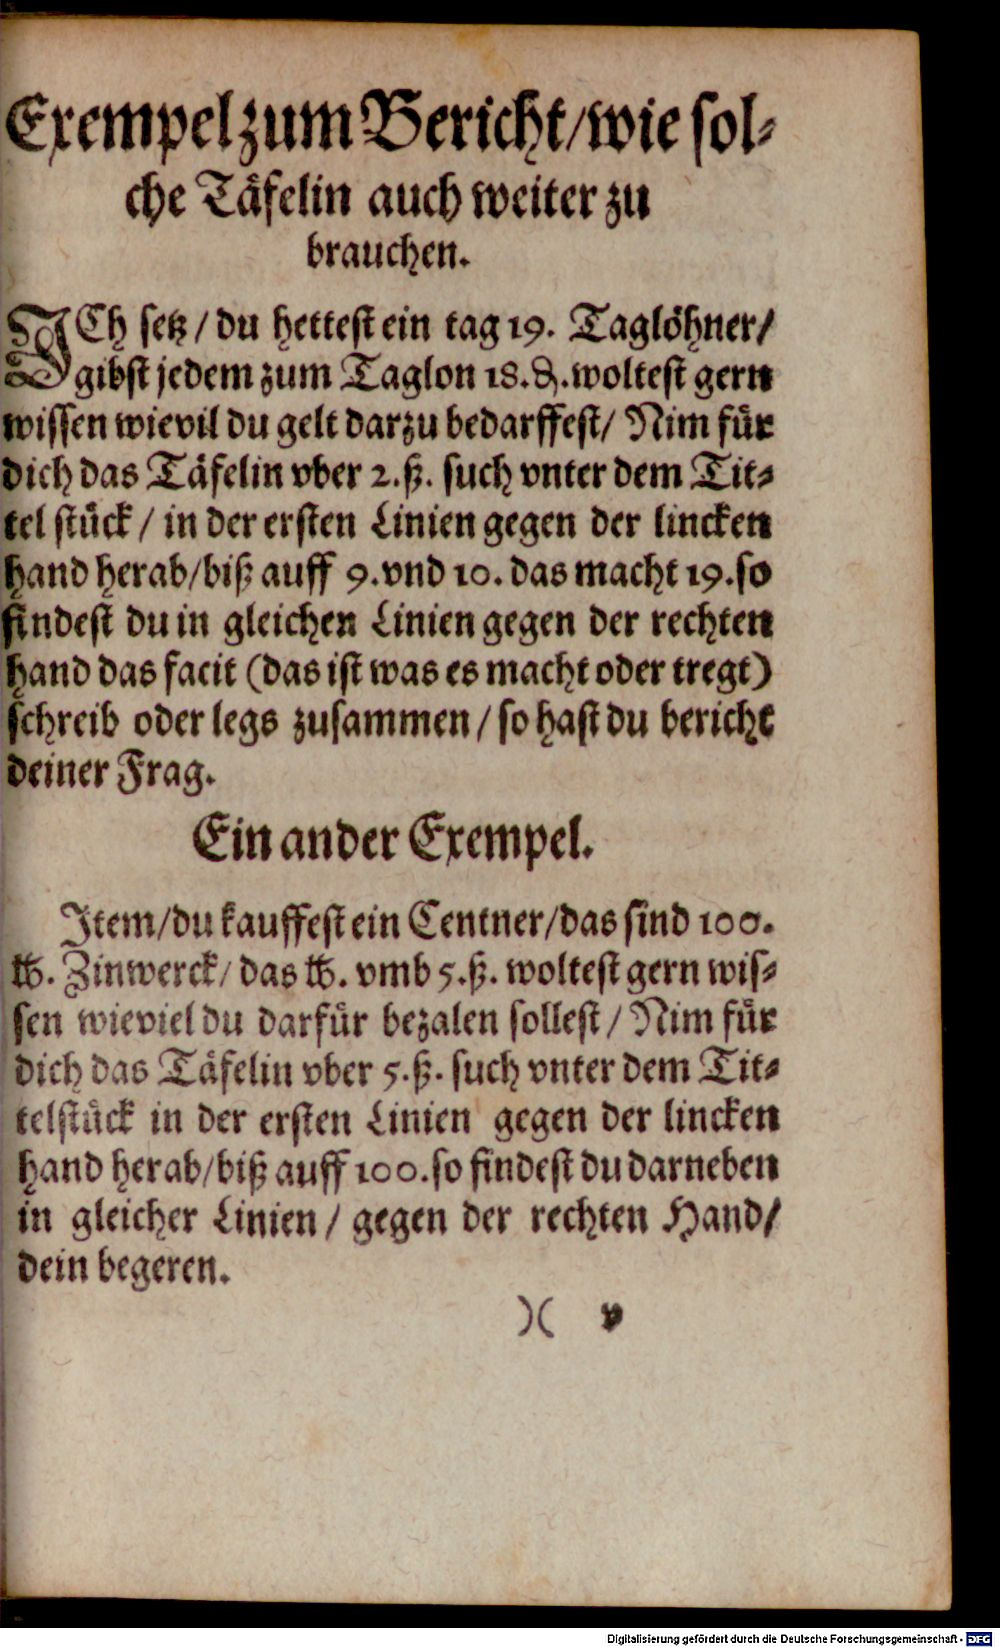 Exempel zum Bericht/wie sol⸗
che Täfelin auch weiter zu
brauchen.
ICh setz/ du hettest ein tag 19. Taglöhner/
gibst jedem zum Taglon 18. ₰. woltest gern
wissen wievil du gelt darzu bedarffest/ Nim für
dich das Täfelin vber 2. ß. such vnter dem Tit⸗
tel stück/ in der ersten Linien gegen der lincken
hand herab/biß auff 9. vnd 10. das macht 19. so
findest du in gleichen Linien gegen der rechten
hand das facit (das ist was es macht oder tregt)
schreib oder legs zusammen/ so hast du bericht
deiner Frag.
Ein ander Exempel.
Item/du kauffest ein Centner/das sind 100.
℔. Zinwerck/ das ℔. vmb 5. ß. woltest gern wis⸗
sen wieviel du darfür bezalen sollest/ Nim für
dich das Täfelin vber 5. ß. such vnter dem Tit⸗
telstück in der ersten Linien gegen der lincken
hand herab/biß auff 100. so findest du darneben
in gleicher Linien/ gegen der rechten Hand/
dein begeren.
)( v
Digitalisierung gefördert durch die Deutsche Forschungsgemeinschaft - DFG